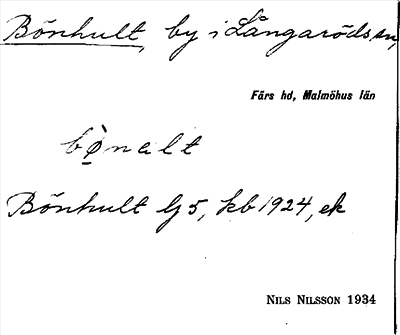 Bönhult, by i Långaröds sn,
Färs hd, Malmöhus län
bø̀nalt
Bönhult lj 5, kb 1924, ek
NILS NILSSON 1934